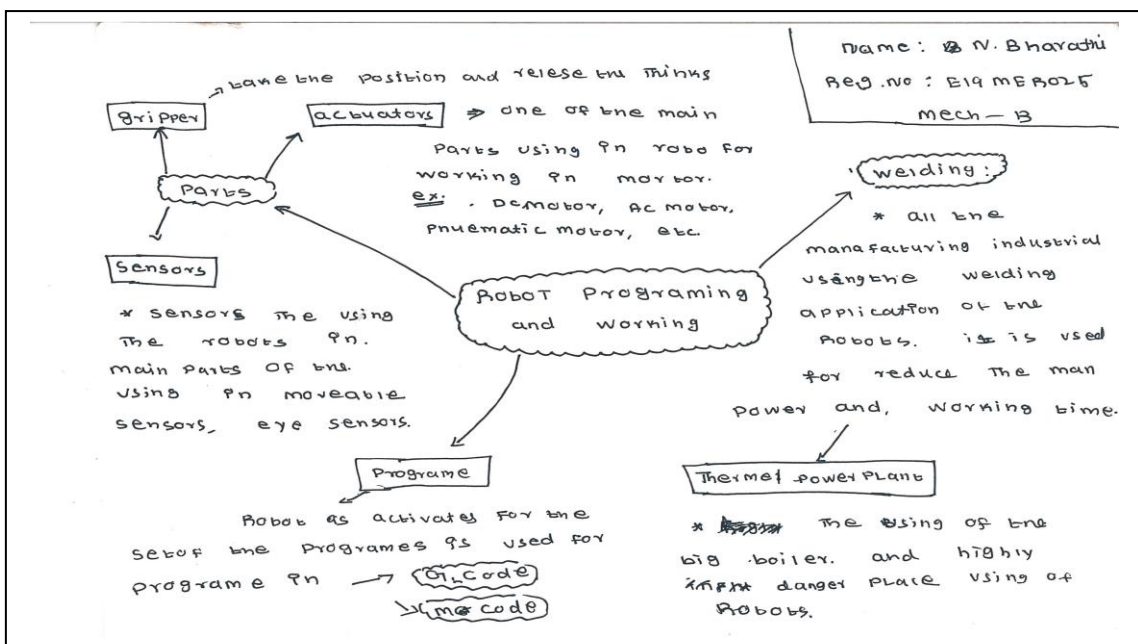 Name: N. Bharathi
Reg.No: E19MER025
Mech-B
take the position and relese the Things
gripper
actuators
one of the main
Parts using in robo for
working in mortor.
ex. . Dcmotor, Ac motor,
Pnuematic motor, etc.
Parts
Sensors
* sensors The using
The robots in.
main parts of the.
using in moveable
sensors, eye sensors.
Robot Programing
and working
welding:
* all the
manafacturing industrial
using the welding
application of the
Robots. is used
for reduce The man
power and, working time.
Programe
Robot as activates for the
setof the programes is used for
programe in
code
code
power Plant
* The using of the
big .boiler. and highly
danger place using of
Robots.